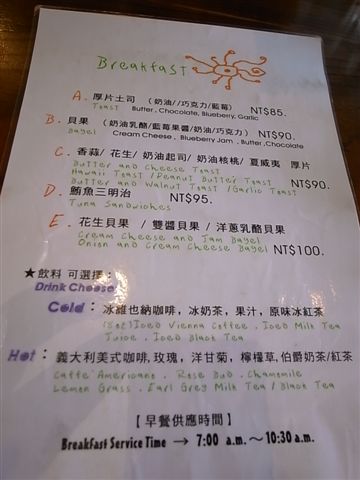 Breakfast
A. 厚片土司 (奶油//巧克力/藍莓) NT$85.
Toast Butter, Chocolate, Blueberry, Garlic
B. 貝果 (奶油乳酪/藍莓果醬/奶油/巧克力) NT$90.
Bagel Cream Cheese, Blueberry Jam, Butter, Chocolate
C. 香蒜/ 花生/ 奶油起司/ 奶油核桃/ 夏威夷 厚片
Butter and Cheese Toast
Hawaii Toast /Peanut Butter Toast
Butter and Walnut Toast /Garlic Toast NT$90.
D. 鮪魚三明治 NT$95.
Tuna Sandwiches
E. 花生貝果 / 雙醬貝果 / 洋蔥乳酪貝果
Cream Cheese and Jam Bagel
Onion and Cream Cheese Bagel NT$100.
★飲料 可選擇:
Drink Choose
Cold: 冰維也納咖啡, 冰奶茶, 果汁, 原味冰紅茶
Iced Vienna Coffee . Iced Milk Tea
Juice . Iced Black Tea
Hot: 義大利美式咖啡, 玫瑰, 洋甘菊, 檸檬草, 伯爵奶茶/紅茶
Caffe' Americano . Rose Bud . Chamomile
Lemon Grass . Earl Grey Milk Tea / Black Tea
【早餐供應時間】
Breakfast Service Time → 7:00 a.m.～10:30 a.m.